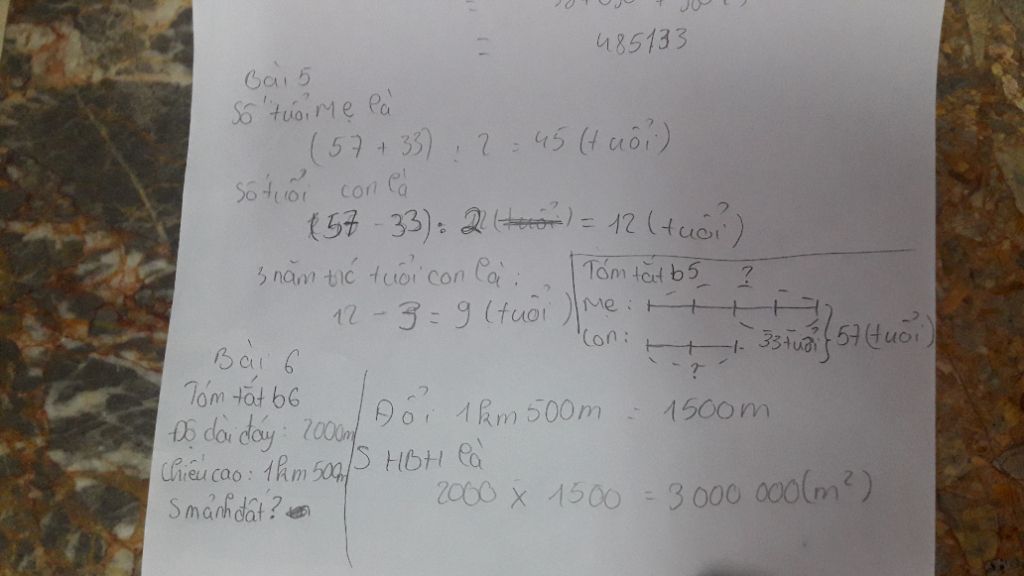 =
= 485133
Bài 5
Số tuổi Mẹ là
(57 + 33) : 2 = 45 (tuổi)
Số tuổi con là
(57 - 33) : 2 (tuổi) = 12 (tuổi)
3 năm trc tuổi con là :
12 - 3 = 9 (tuổi)
Tóm tắt b5
?
Mẹ :
Con :
33 tuổi
57 (tuổi)
?
Bài 6
Tóm tắt b6
Độ dài đáy : 2000m
Chiều cao : 1km 500m
S mảnh đất ?
Đổi 1km 500m = 1500m
S HBH là
2000 x 1500 = 3 000 000 (m²)